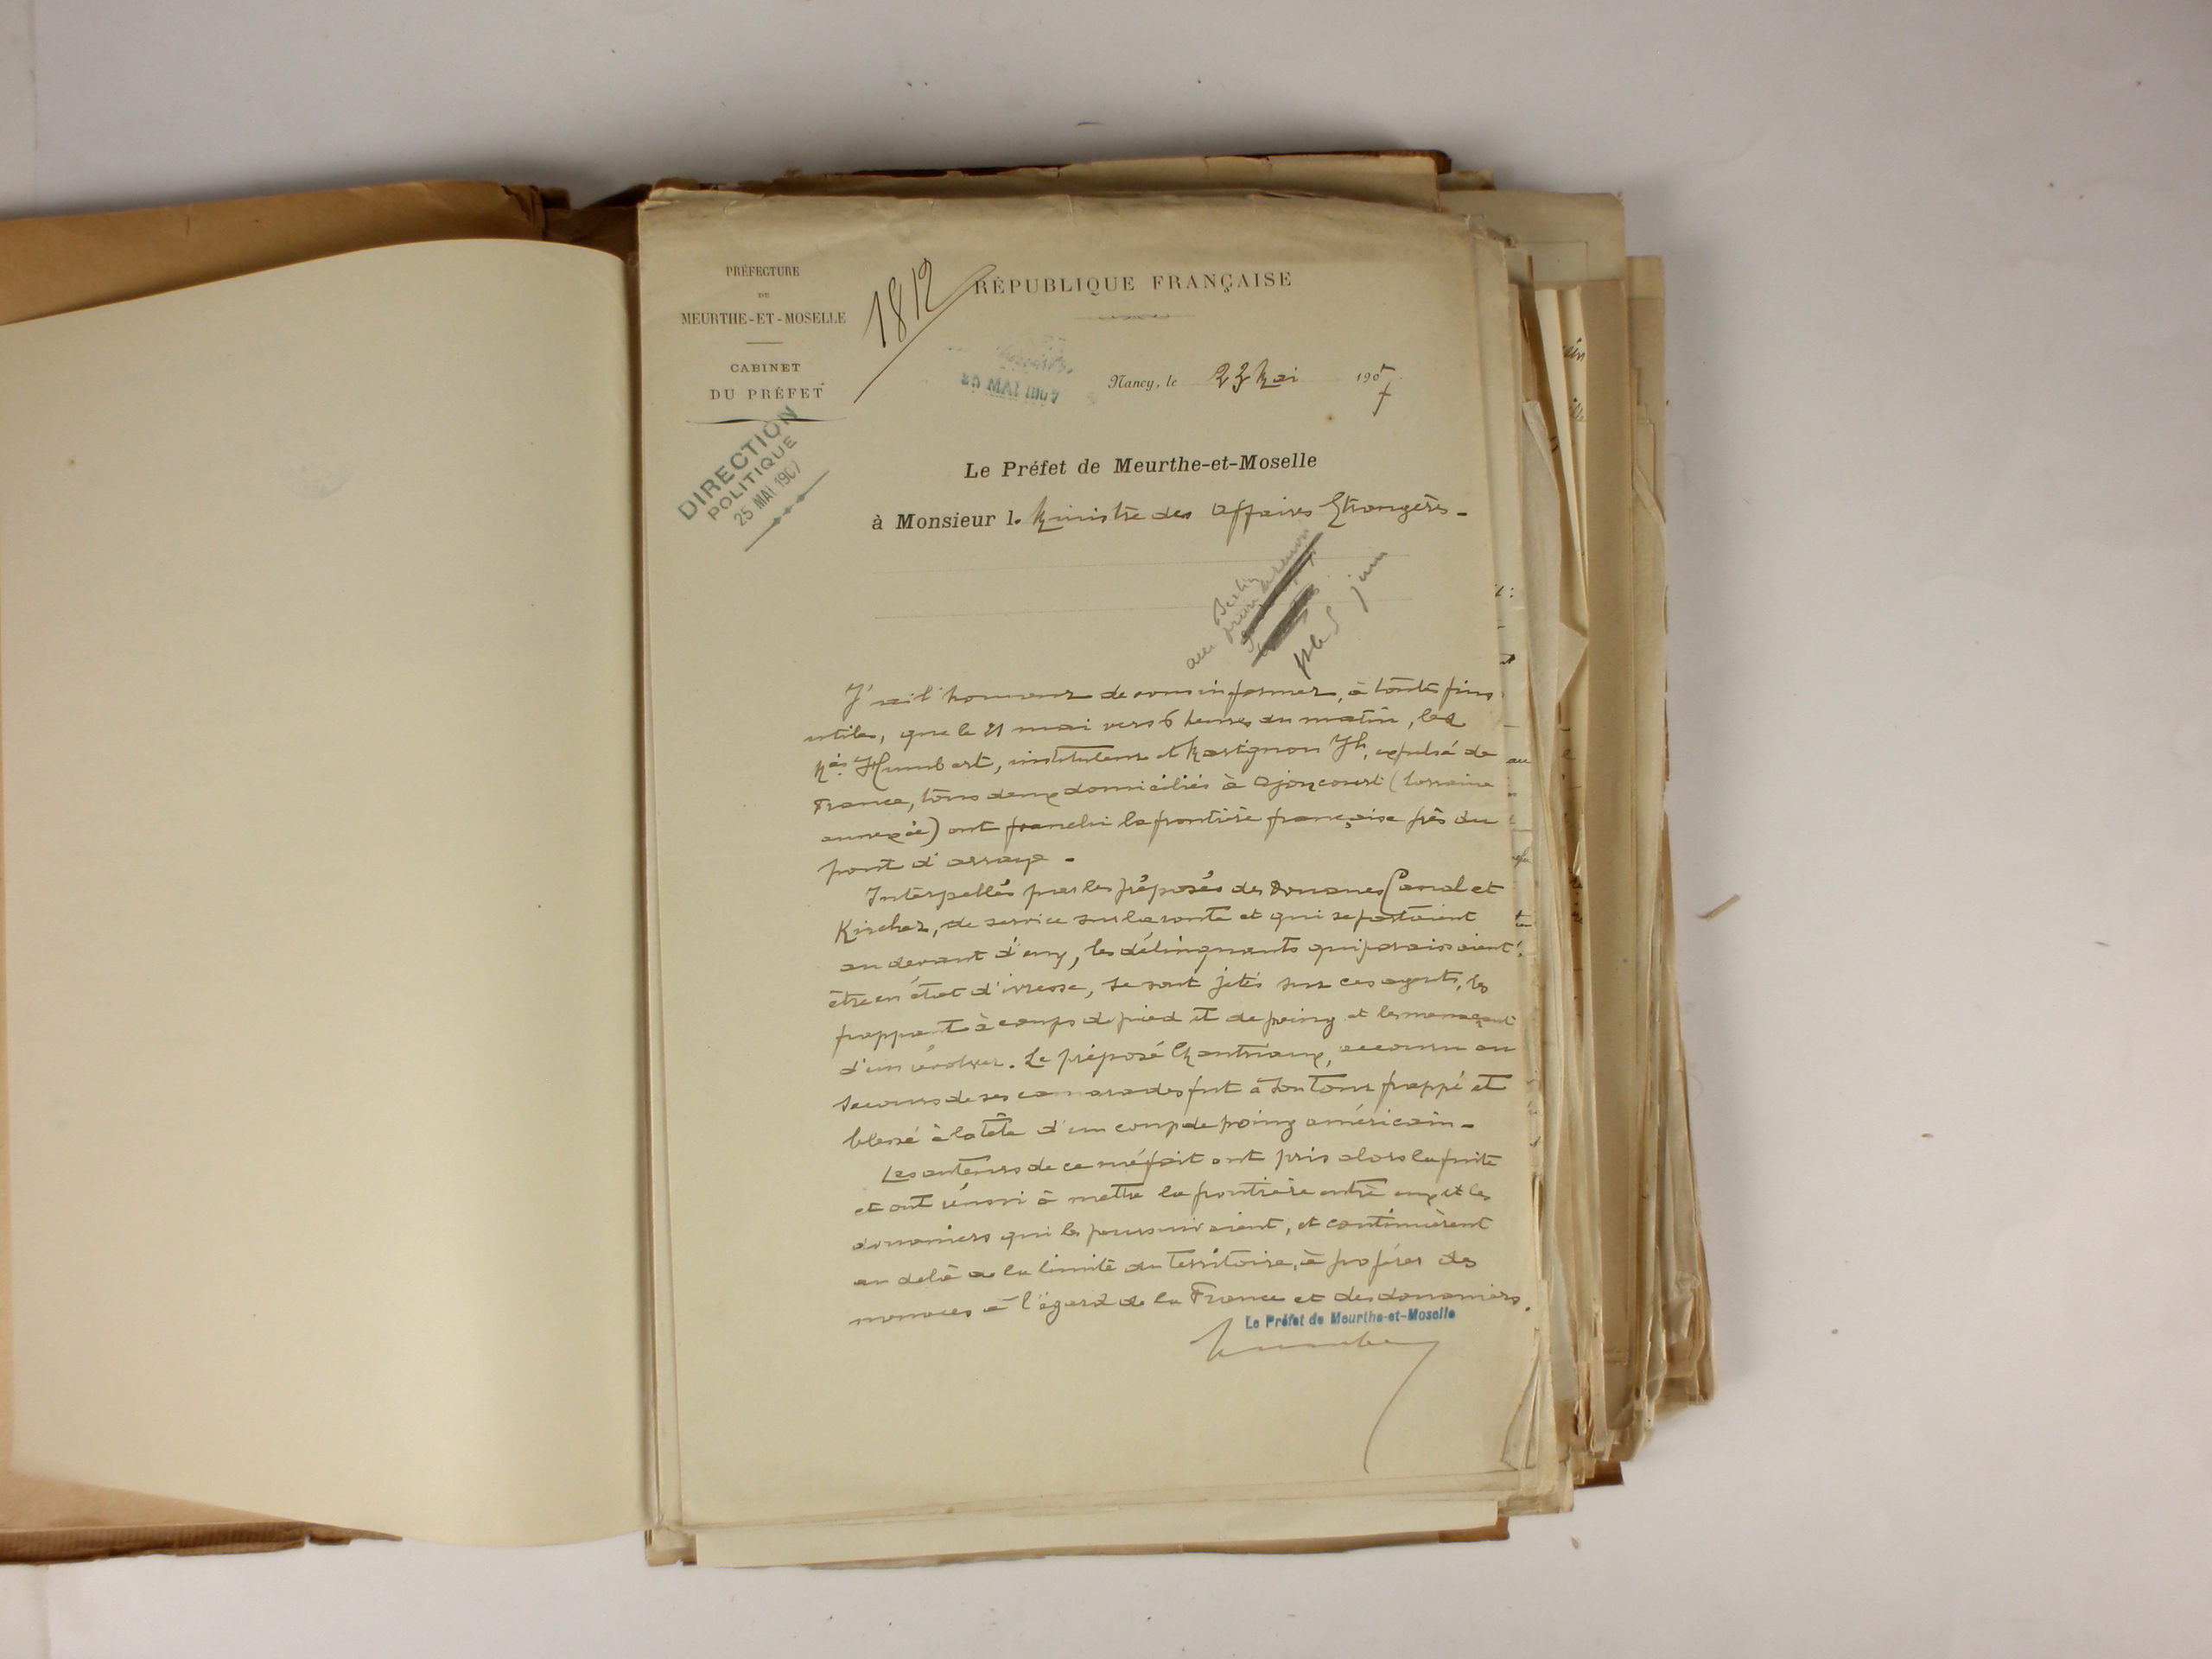 PRÉFECTURE
DE
MEURTHE-ET-MOSELLE
CABINET
DU PRÉFET
1812
RÉPUBLIQUE FRANÇAISE
25 MAI 1907
Nancy, le 23 Mai 1907
DIRECTION
POLITIQUE
25 MAI 1907
Le Préfet de Meurthe-et-Moselle
à Monsieur le Ministre des Affaires Etrangères.
Berlin
5 juin
J'ai l'honneur de vous informer, à toutes fins
utiles, que le 21 mai vers 6 heures du matin, les
Humbert, instituteur et Marignon Jh, expulsé de
France, tous deux domiciliés à Ajoncourt (Lorraine
annexée) ont franchi la frontière française près du
pont d'arraye.
Interpellés par les préposés des Douanes Canal et
Kircher, de service sur la route et qui se portaient
au devant d'eux, les délinquants qui paraissaient
être en état d'ivresse, se sont jetés sur ces agents, les
frappant à coups de pied et de poing et les menaçant
d'un révolver. Le préposé Chantriaux, accouru au
secours de ses camarades fut à son tour frappé et
blessé à la tête d'un coup de poing américain.
Les auteurs de ce méfait ont pris alors la fuite
et ont réussi à mettre la frontière entre eux et les
douaniers qui les poursuivaient, et continuèrent
au delà de la limite du territoire, à proférer des
menaces à l'égard de la France et des douaniers.
Le Préfet de Meurthe-et-Moselle